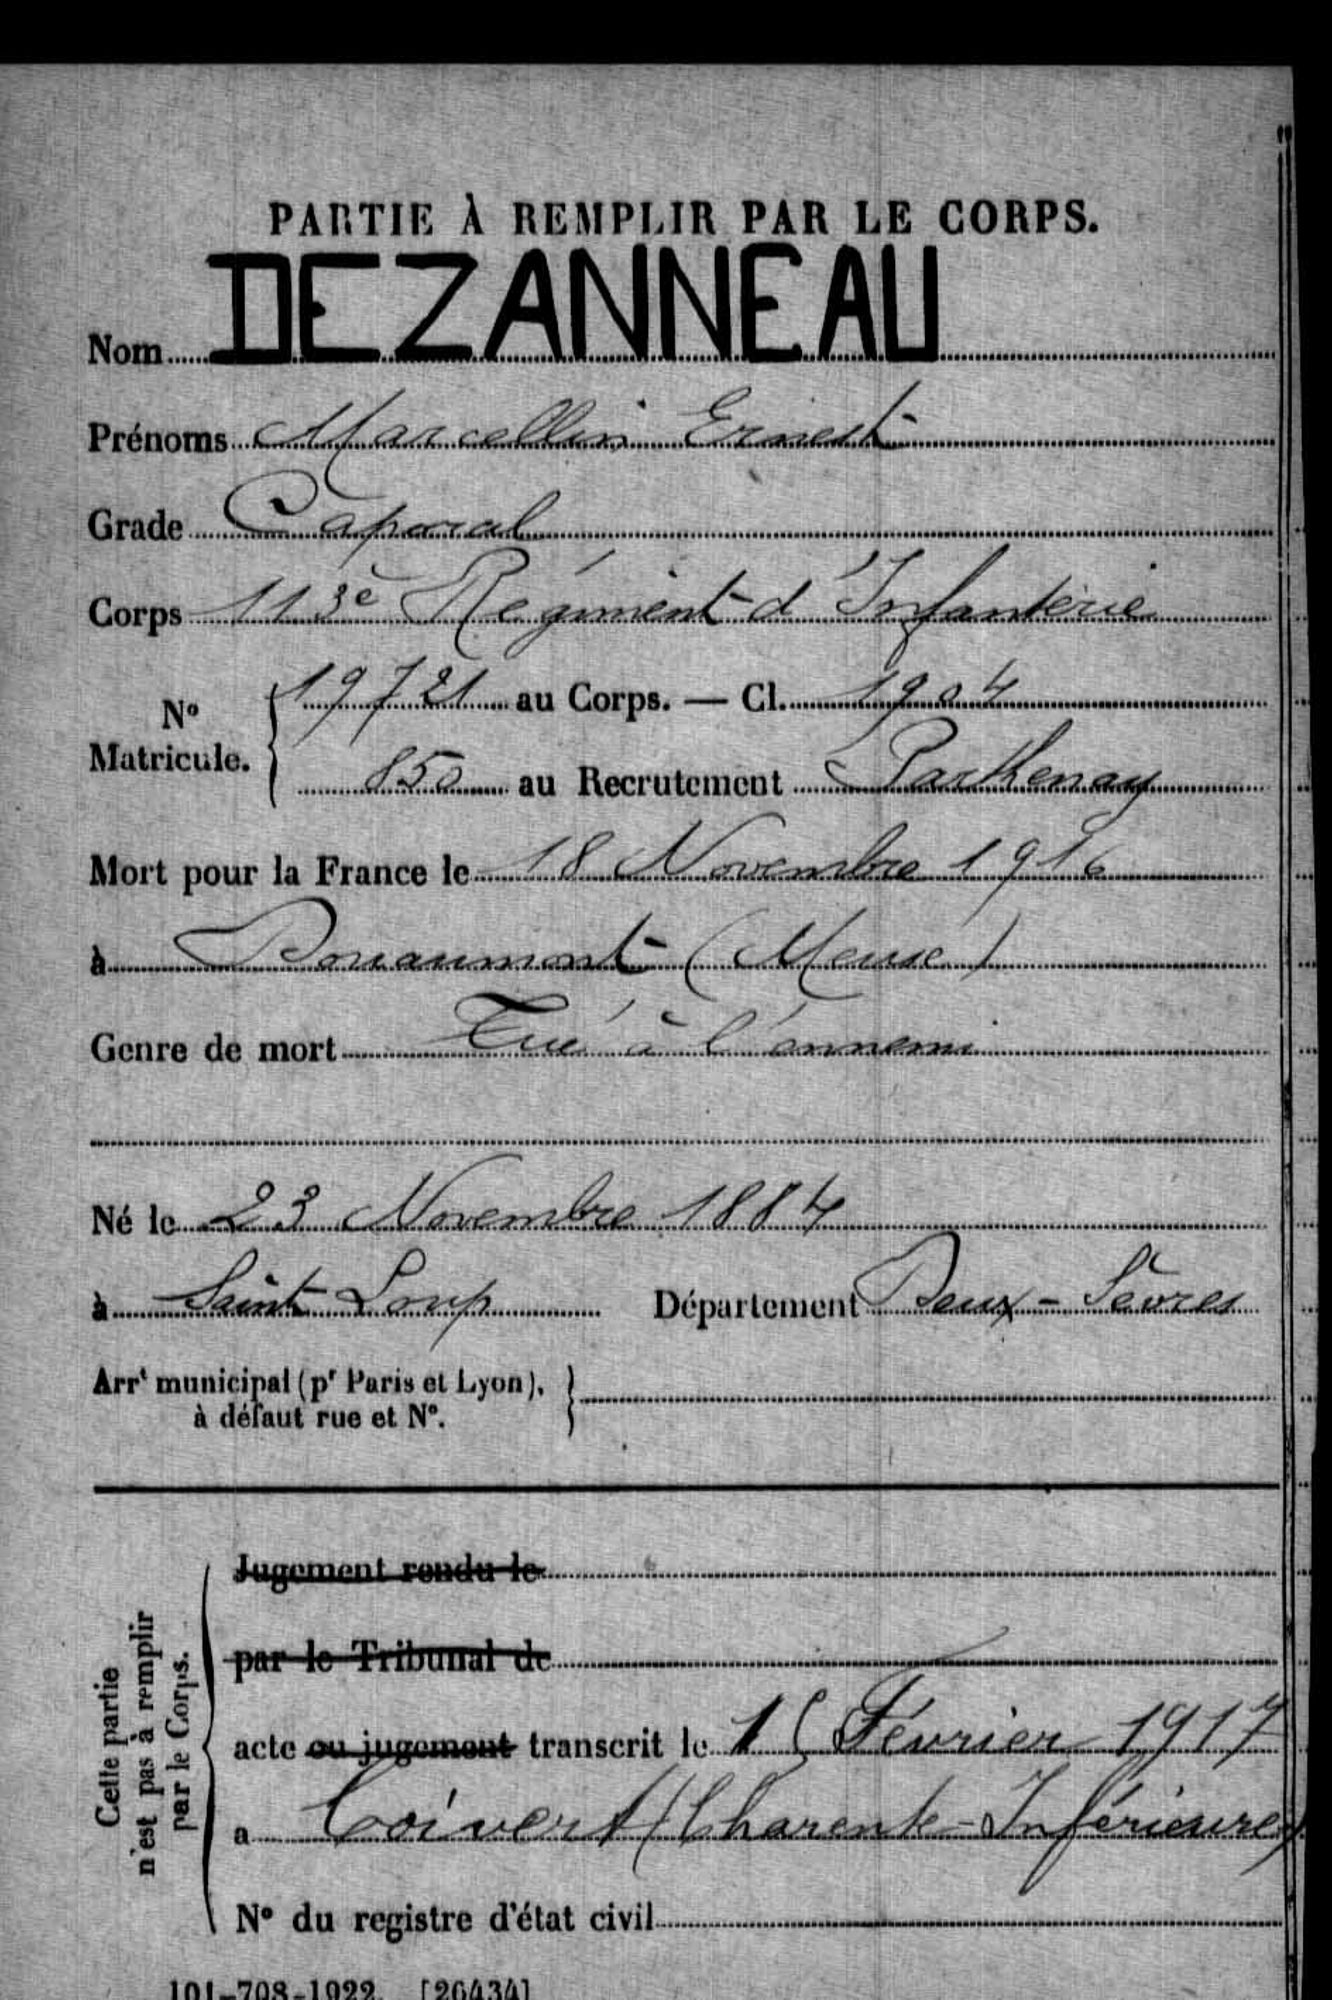 PARTIE À REMPLIR PAR LE CORPS.
Nom DEZANNEAU
Prénoms Marcellin Ernest
Grade Caporal
Corps 113e Régiment d'Infanterie
N° Matricule. { 19721 au Corps. — Cl. 1904
850 au Recrutement Parthenay
Mort pour la France le 18 Novembre 1916
à Douaumont (Meuse)
Genre de mort Tué à l'ennemi
Né le 23 Novembre 1884
à Saint Loup Département Deux-Sèvres
Arrt municipal (pr Paris et Lyon), }
à défaut rue et N°.
Cette partie
n'est pas à remplir
par le Corps.
Jugement rendu le
par le Tribunal de
acte ou jugement transcrit le Février 1917
a Coivert (Charente-Inférieure)
N° du registre d'état civil
101-708-1922. [26434]